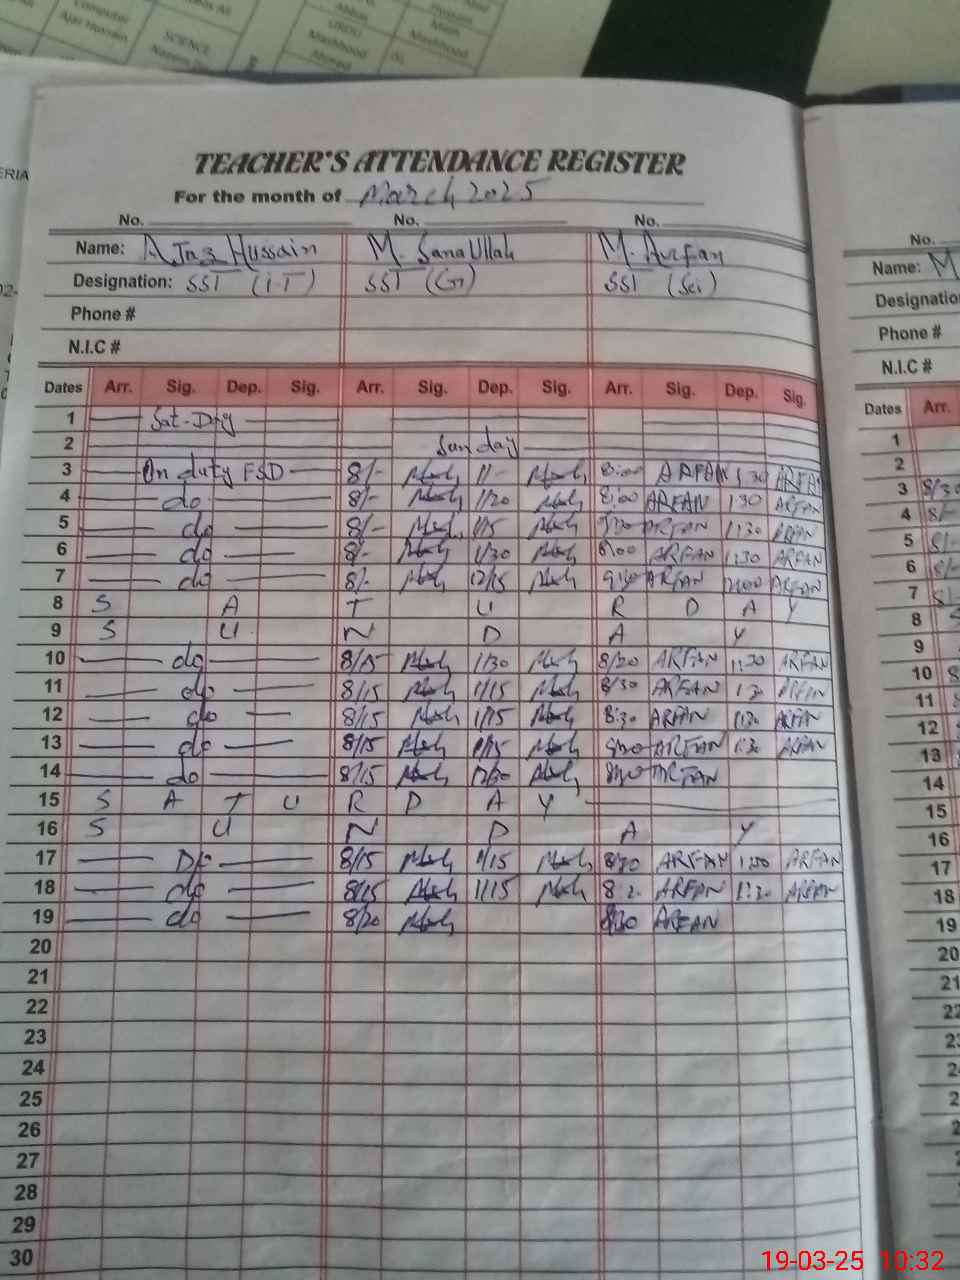 Computer
Ajaz Hussain
SCIENCE
URDU
Mashhood
Ahmed
Math
Mashhood
ERIA
TEACHER'S ATTENDANCE REGISTER
For the month of March 2025
No. No. No.
Name: AJaz Hussain M. SanaUllah M. Arfan
Designation: SST (I.T) SST (G) SST (Sci)
Phone #
N.I.C #
Dates Arr. Sig. Dep. Sig. Arr. Sig. Dep. Sig. Arr. Sig. Dep. Sig.
1 Sat-Day
2 Sunday
3 On duty FSD 8/- 1/- 8:00 ARFAN 1:30 ARFAN
4 do 8/- 1/20 8:00 ARFAN 1:30 ARFAN
5 do 8/- 1/15 ARFAN 1:30 ARFAN
6 do 8/- 1/30 8:00 ARFAN 1:30 ARFAN
7 do 8/- 12/15 ARFAN 12:00 ARFAN
8 S A T U R D A Y
9 S U N D A Y
10 do 8/15 1/30 8/20 ARFAN 1:30 ARFAN
11 do 8/15 1/15 8/30 ARFAN 1:30 ARFAN
12 do 8/15 1/15 8:30 ARFAN 1:30 ARFAN
13 do 8/15 1/15 8:30 ARFAN 1:30 ARFAN
14 do 8/15 ARFAN
15 S A T U R D A Y
16 S U N D A Y
17 Do 8/15 1/15 8:30 ARFAN ARFAN
18 do 8/15 1/15 8:30 ARFAN 1:30 ARFAN
19 do 8/20 8:30 ARFAN
20
21
22
23
24
25
26
27
28
29
30
No.
Name: M
Designatio
Phone #
N.I.C #
Dates Arr.
1
2
3 8/30
4 8/-
5 8/-
6 8/-
7 8/-
8 S
9
10 8
11
12
13
14
15
16
17
18
19
20
21
22
19-03-25 10:32